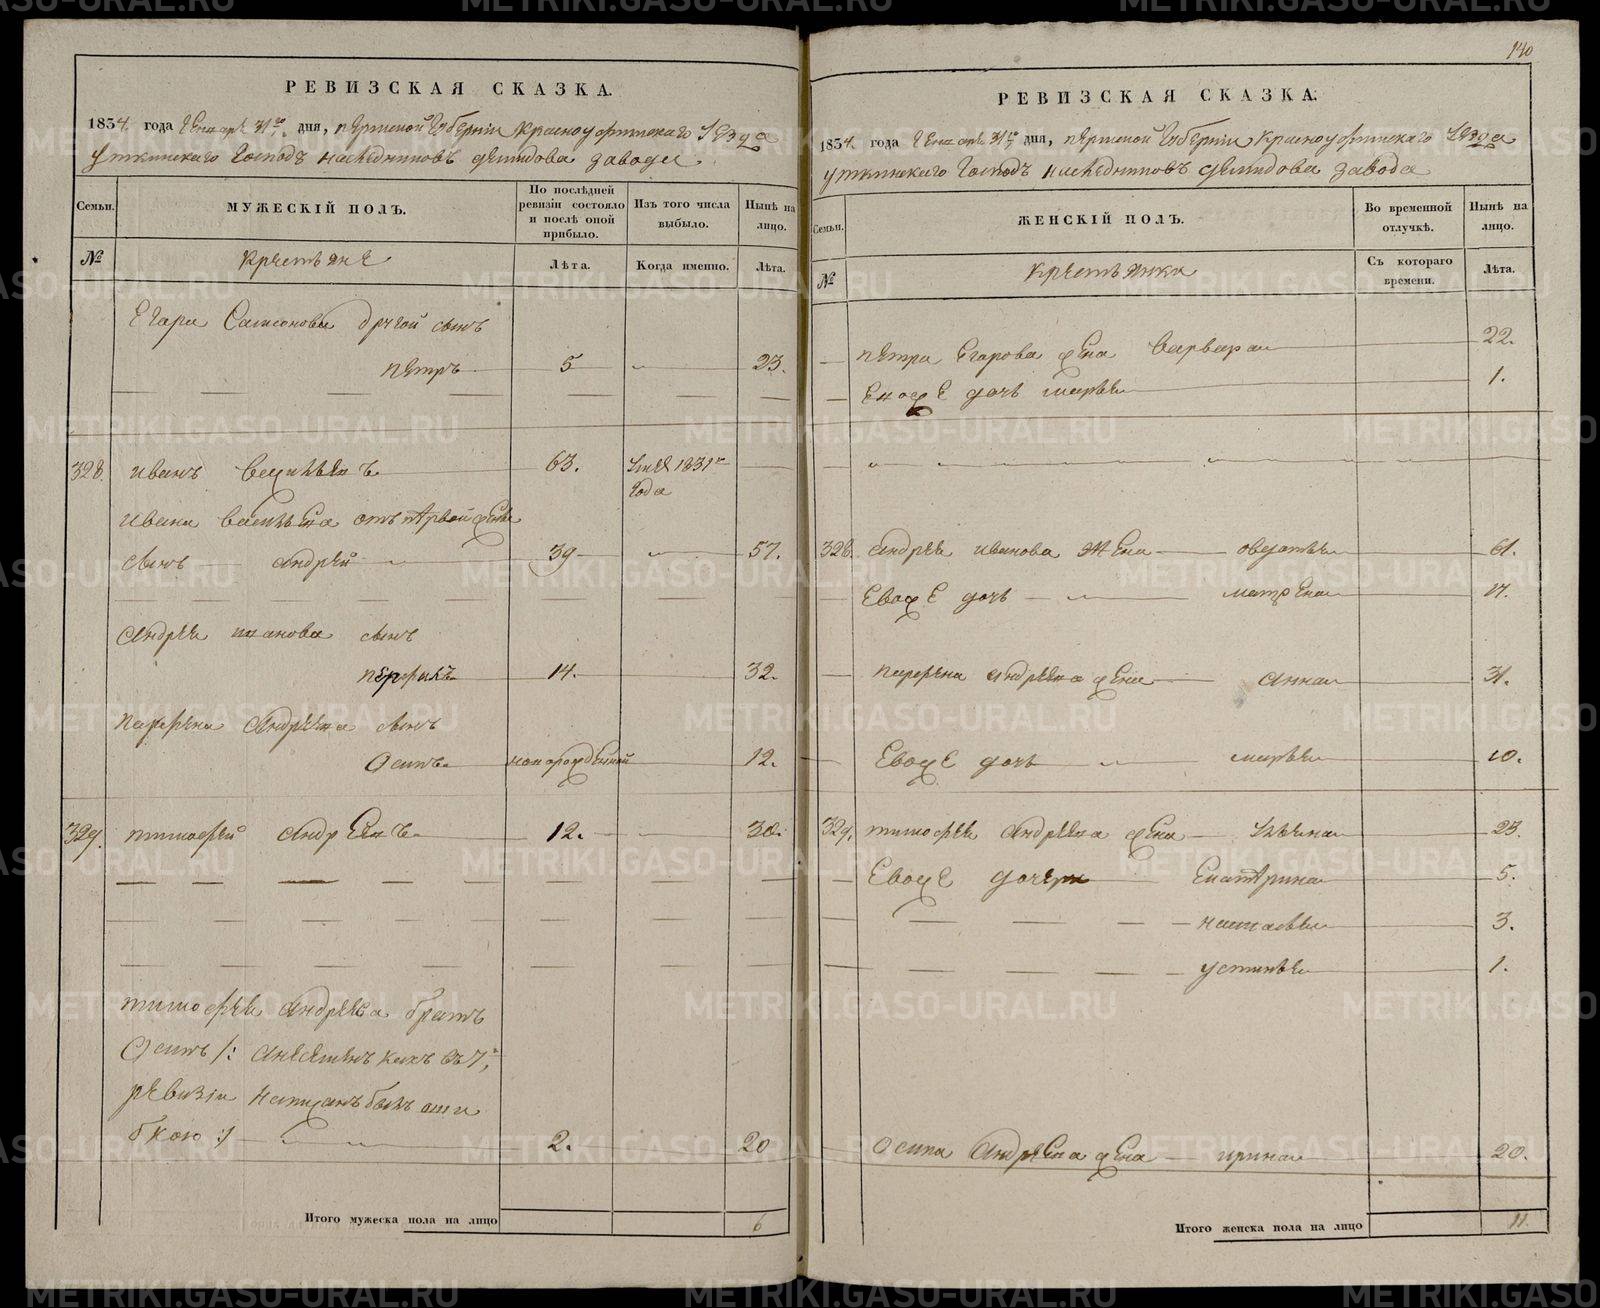 140
РЕВИЗСКАЯ СКАЗКА.
1834 года Генваря 31го дня, Пермской Губернии Красноуфимскаго уезда
Уткинскаго Господъ наследниковъ Демидова завода
Семьи.
МУЖЕСКІЙ ПОЛЪ.
По послѣдней ревизіи состояло и послѣ оной прибыло.
Изъ того числа выбыло.
Нынѣ на лицо.
№
Крестьяне
Лѣта.
Когда именно.
Лѣта.
Егара Самсонова другой сынъ
петръ 5 23.
328. Иванъ Васильевъ 63. Умеръ 1831го
года
Ивана Васильева отъ первой жены
сынъ Андрей 39 57.
Андрея Иванова сынъ
14. 32.
Парфена Андреева сынъ
Осипъ новорожденной 12.
329. Тимофей Андреевъ 12. 30.
Тимофея Андреева братъ
Осипъ /: а не Семенъ какъ въ 7й
ревизіи написанъ былъ оши
бкою :/ 2. 20
Итого мужеска пола на лицо 6
РЕВИЗСКАЯ СКАЗКА.
1834 года Генваря 31го дня, Пермской Губернии Красноуфимскаго уезда
Уткинскаго Господъ наследниковъ Демидова завода
Семьи.
ЖЕНСКІЙ ПОЛЪ.
Во временной отлучкѣ.
Нынѣ на лицо.
№
Крестьянки
Съ котораго времени.
Лѣта.
Петра Егарова жена Варвара 22.
Ево же дочь Марья 1.
328. Андрея Иванова жена 61.
Ево же дочь Матрена 17.
Парфена Андреева жена Анна 31.
Ево же дочь Марья 10.
329. Тимофея Андреева жена Ульяна 23.
Ево же дочери Екатерина 5.
Настасья 3.
Устинья 1.
Осипа Андреева жена Ирина 20.
Итого женска пола на лицо 11.
METRIKI.GASO-URAL.RU